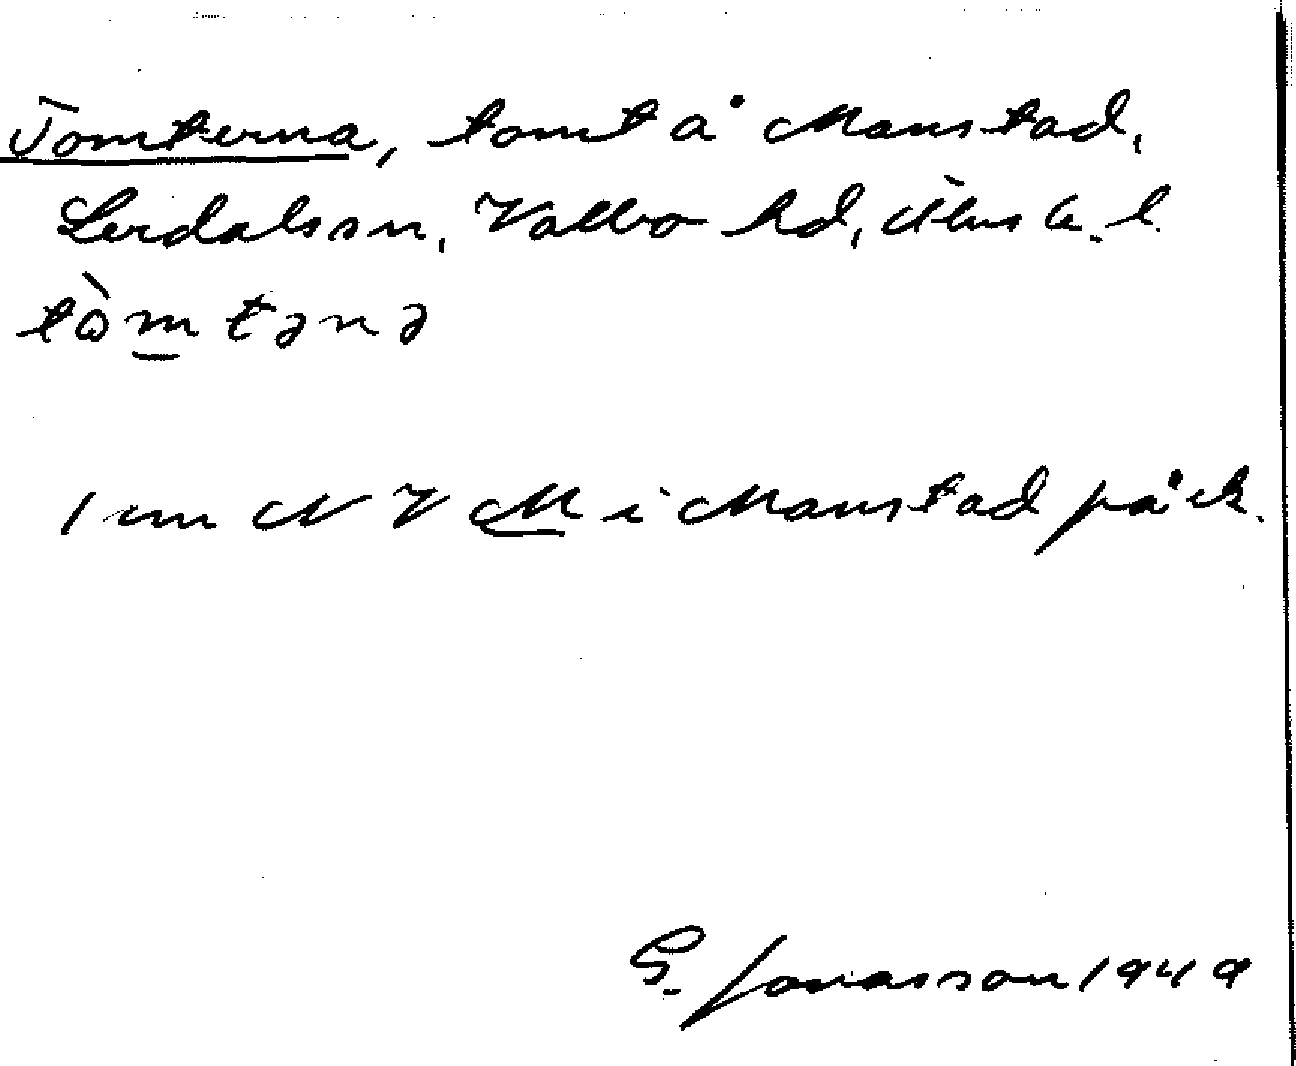 Tomterna, tomt å Manstad,
Lerdals sn, Valbo hd, Älvsb. l.
tòm̲tənə
1 cm NV M̲ i Manstad på ek.
G. Jonasson 1949